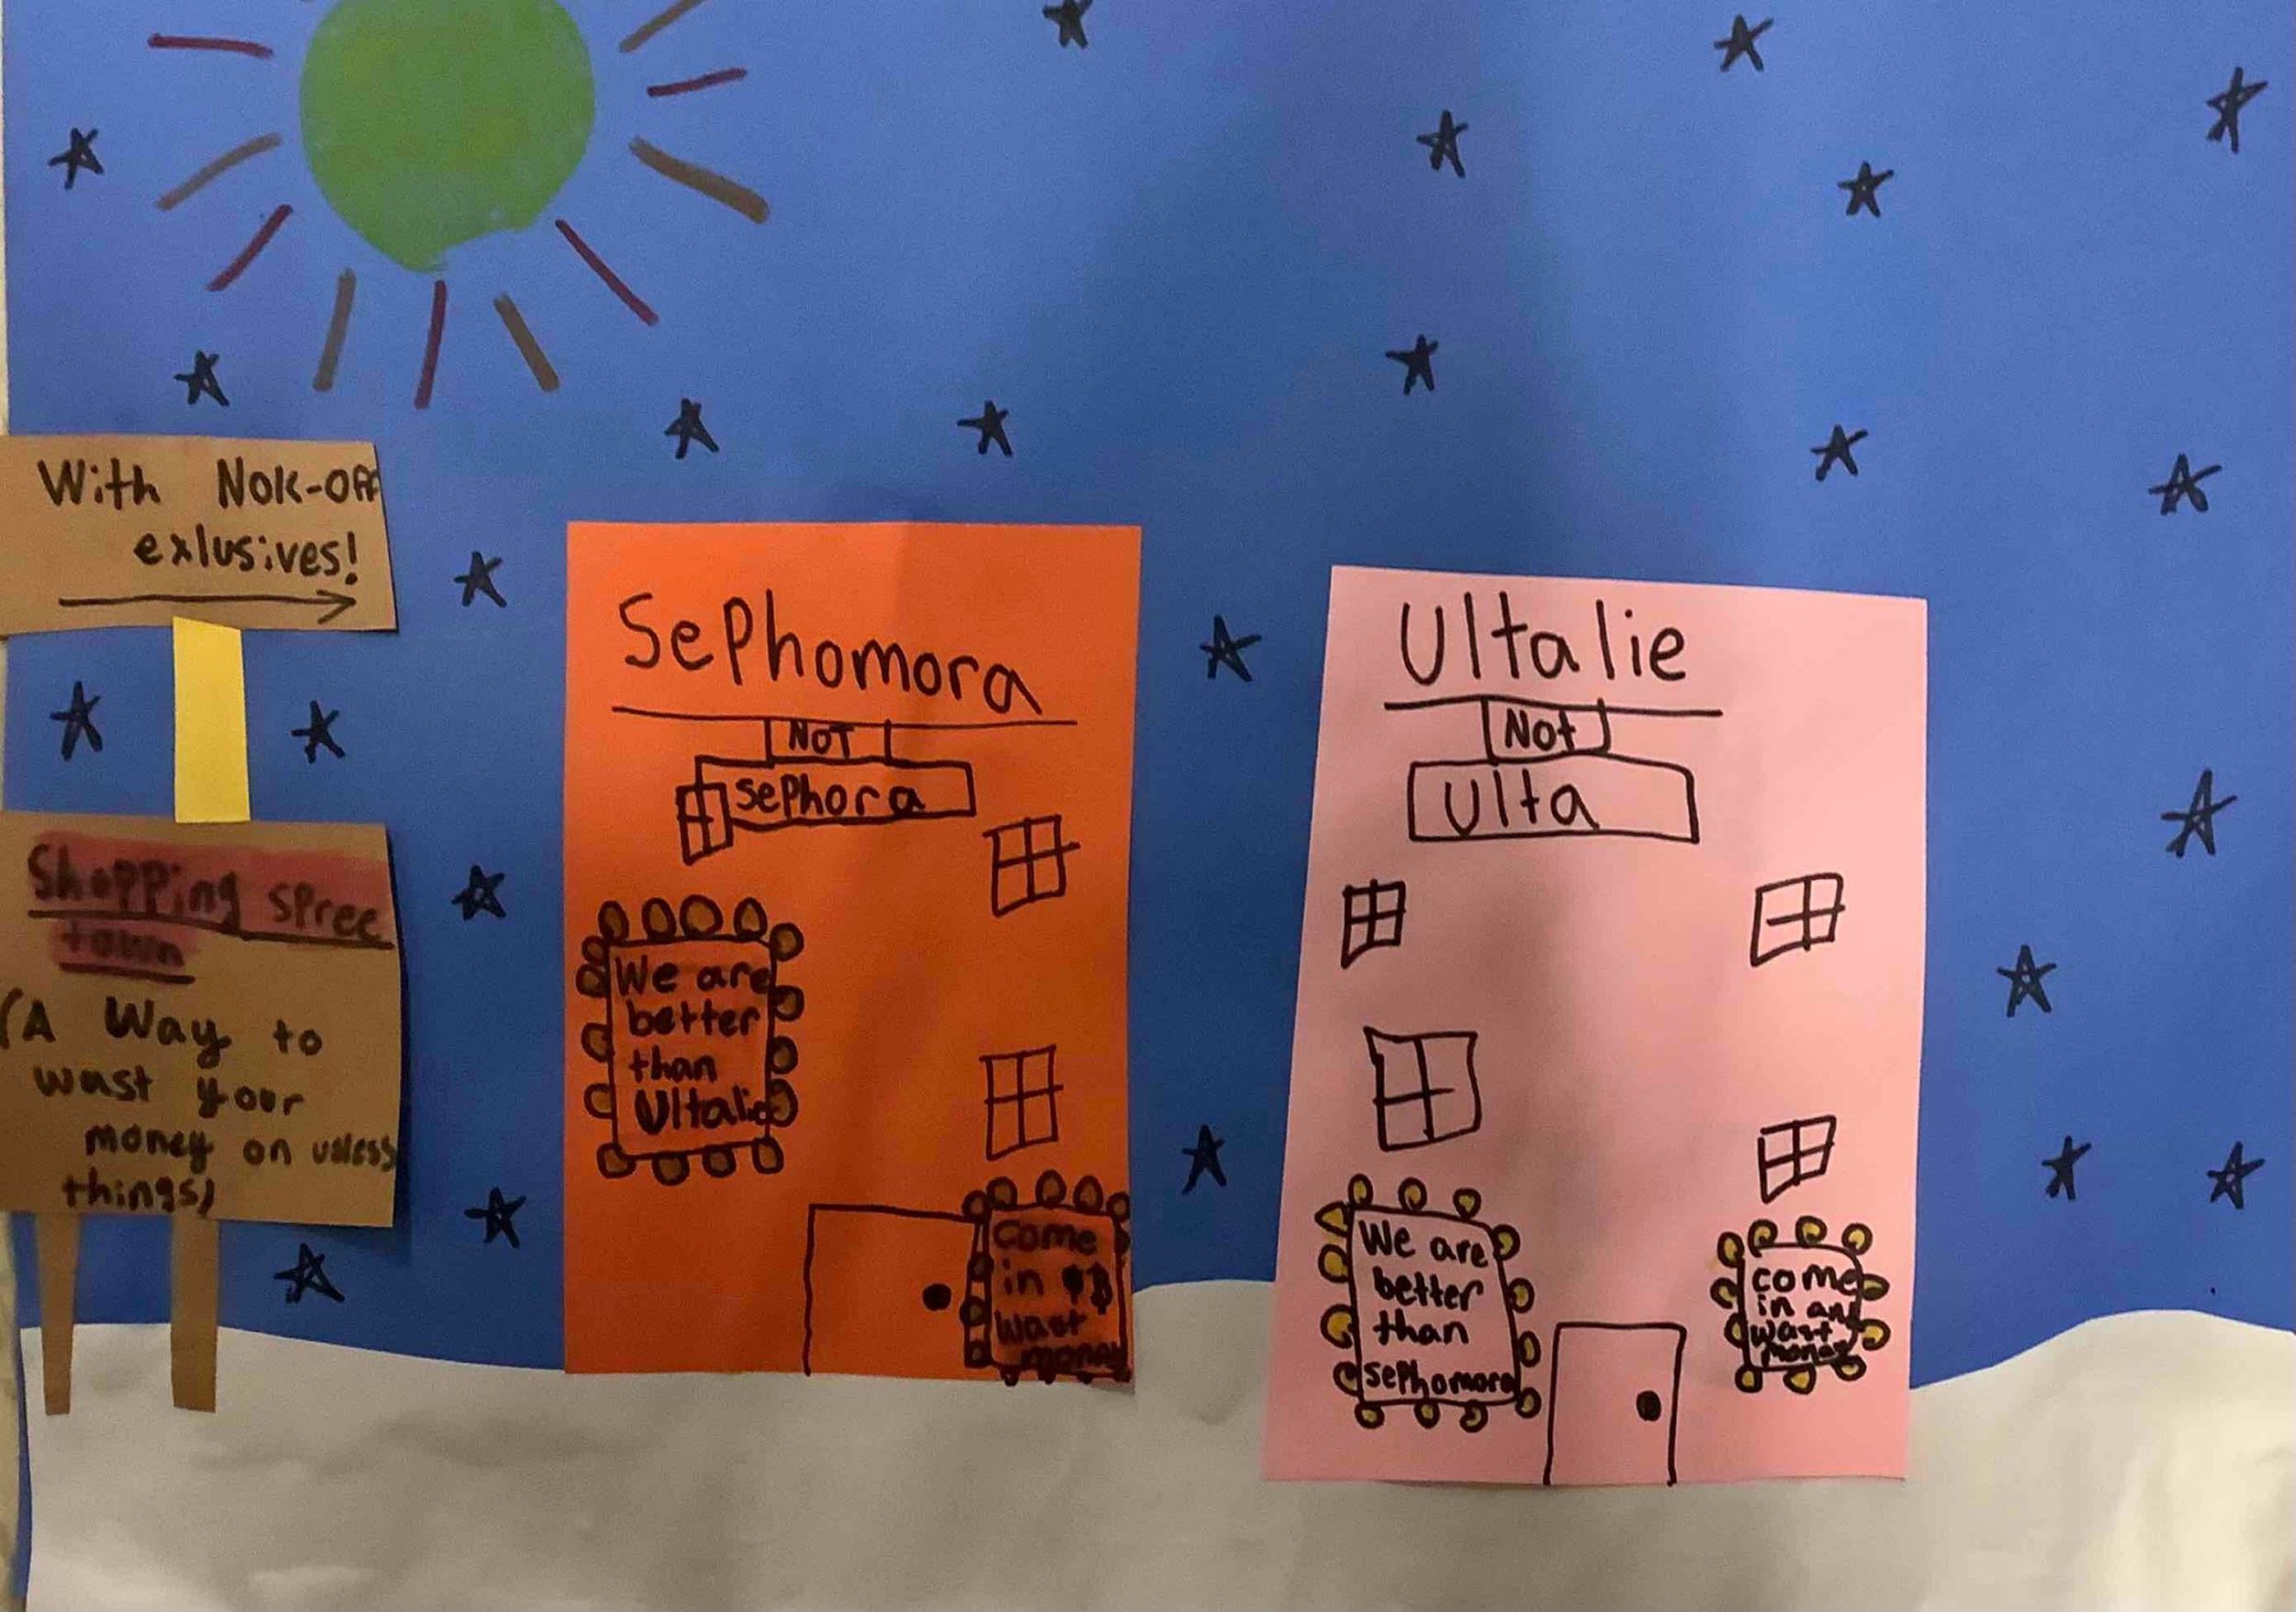 With Nok-off
exlusives!
Shopping spree
town
(A Way to
wast your
money on usless
things)
Sephomora
NOT
sephora
We are
better
than
Ultalie
Come
in
wast
money
Ultalie
Not
Ulta
We are
better
than
sephomora
come
in and
wast
money